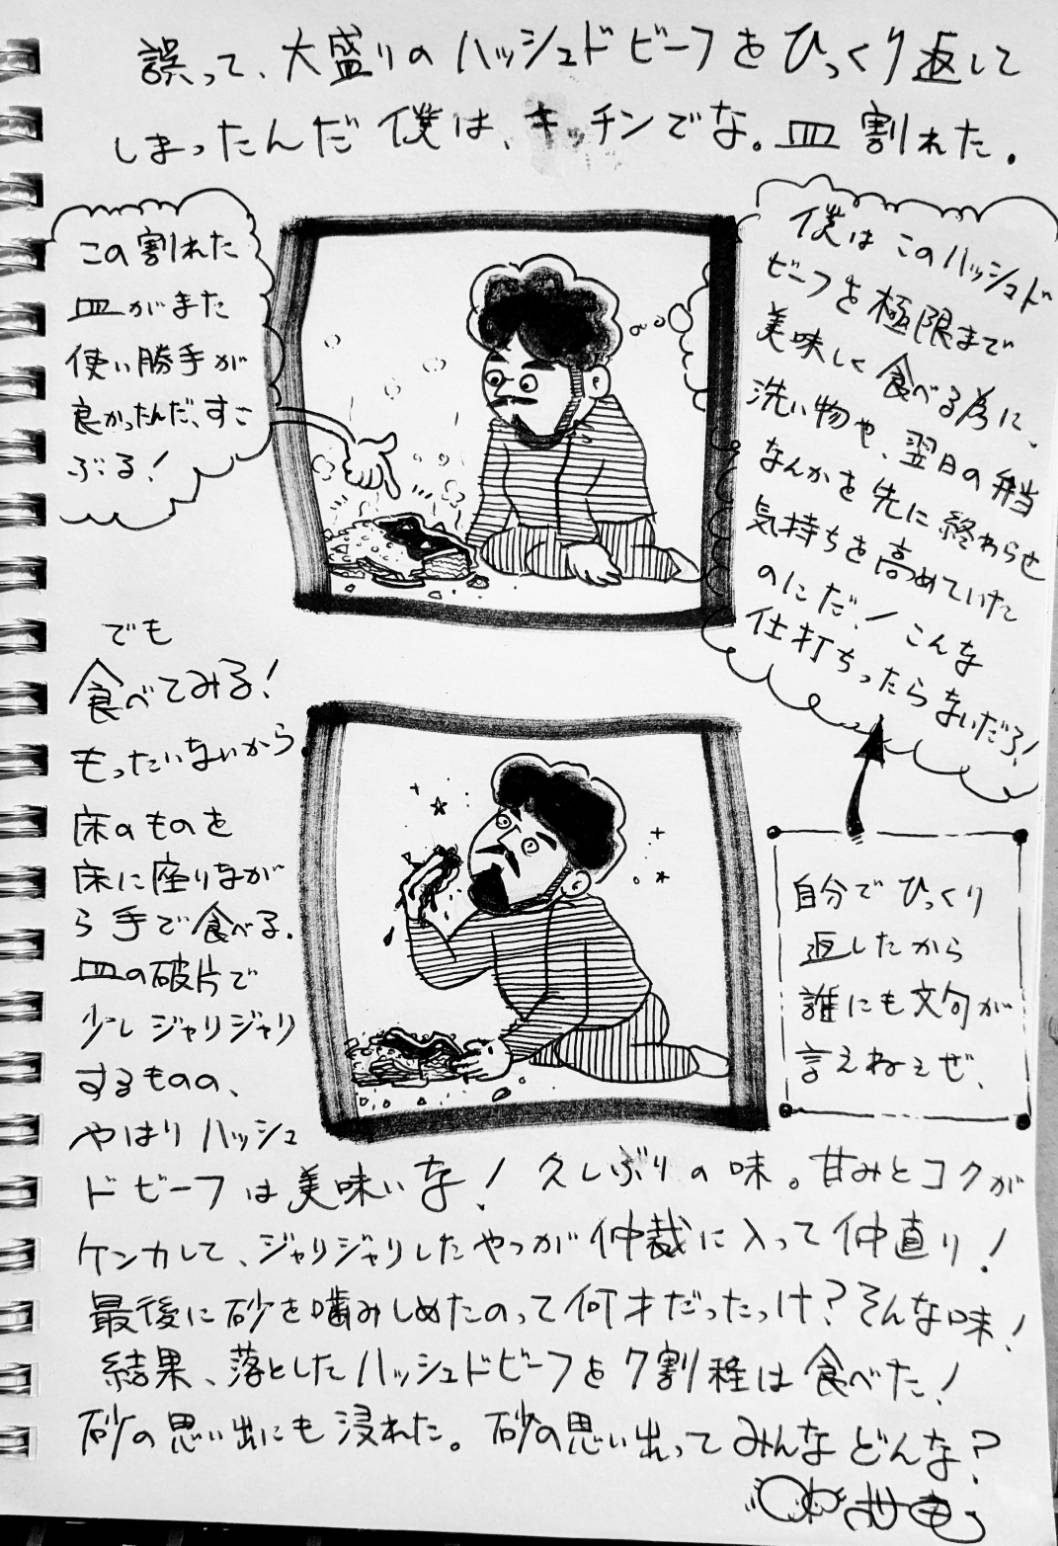 誤って、大盛りのハッシュドビーフをひっくり返して
しまったんだ僕は、キッチンでな。皿割れた。
この割れた
皿がまた
使い勝手が
良かったんだ、すこ
ぶる!
僕はこのハッシュド
ビーフを極限まで
美味しく食べる為に、
洗い物や、翌日の弁当
なんかを先に終わらせ
気持ちを高めていた
のにだ!こんな
仕打ちったらないだろ!
でも
食べてみる!
もったいないから。
床のものを
床に座りなが
ら手で食べる。
皿の破片で
少しジャリジャリ
するものの、
やはりハッシュ
自分でひっくり
返したから
誰にも文句が
言えねぇぜ、
ドビーフは美味いな!久しぶりの味。甘みとコクが
ケンカして、ジャリジャリしたやつが仲裁に入って仲直り!
最後に砂を噛みしめたのって何才だったっけ?そんな味!
結果、落としたハッシュドビーフを7割程は食べた!
砂の思い出にも浸れた。砂の思い出ってみんなどんな?